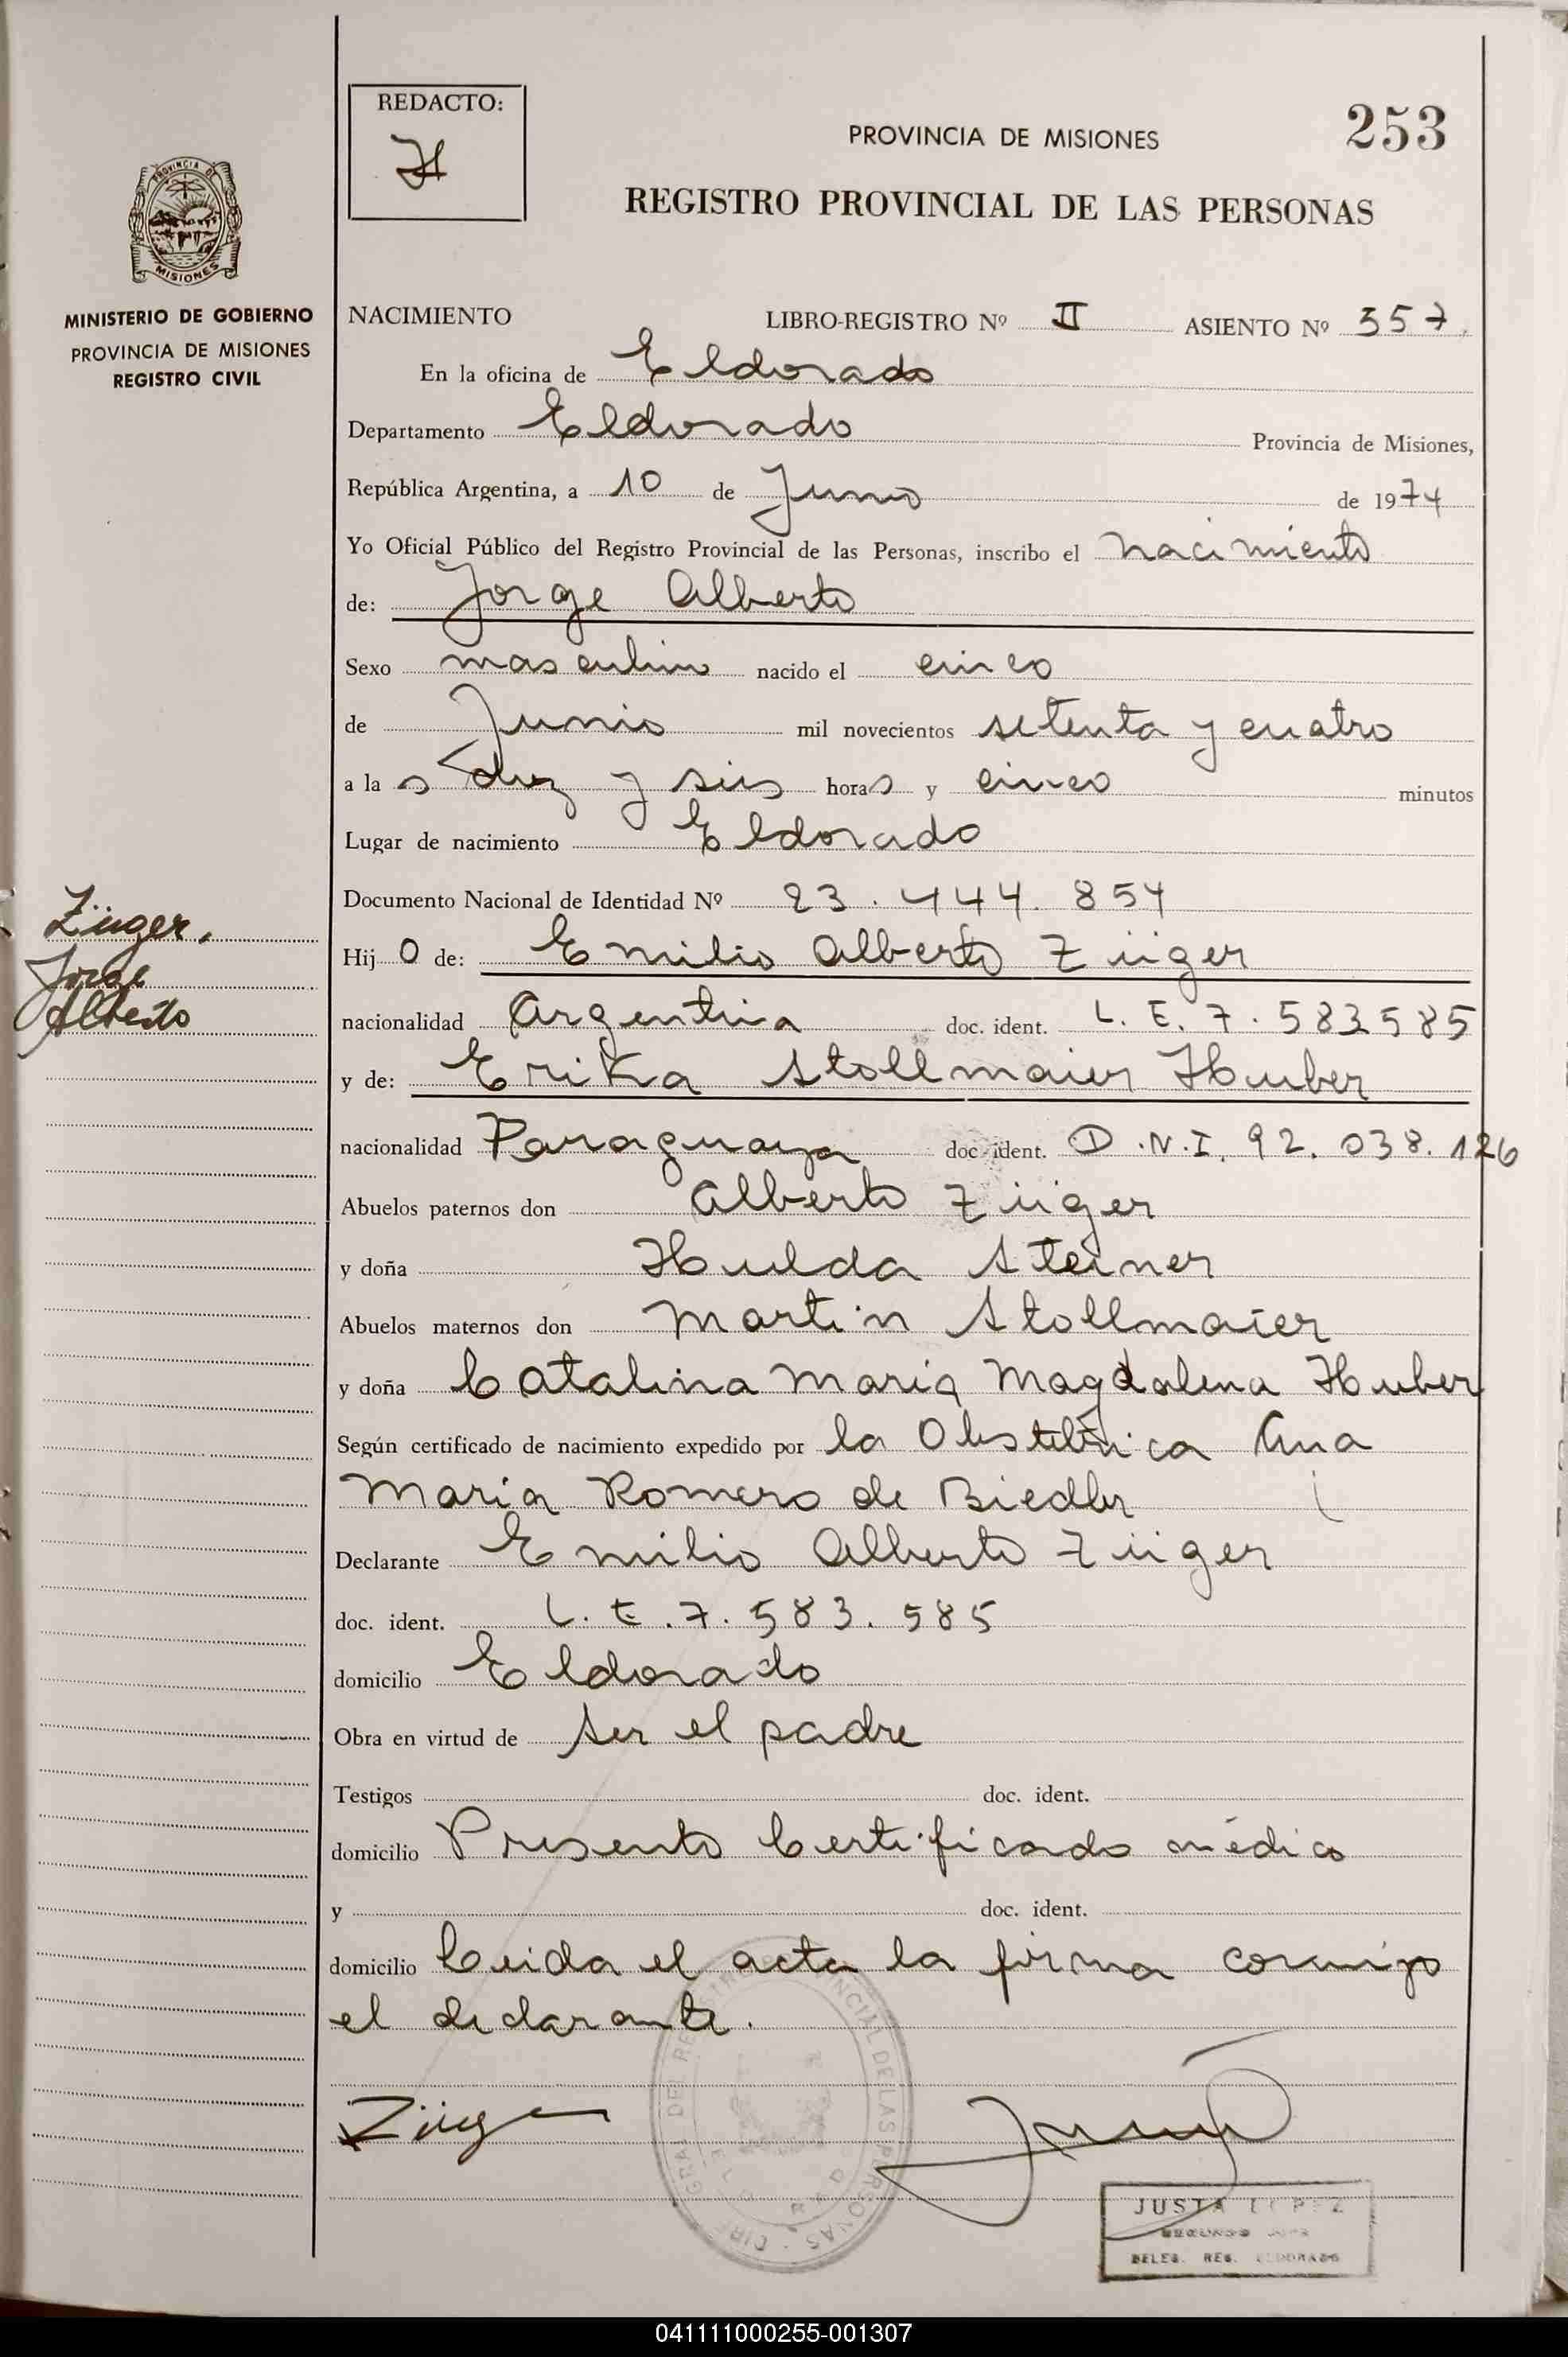 REDACTO:
H
PROVINCIA DE MISIONES
253
REGISTRO PROVINCIAL DE LAS PERSONAS
PROVINCIA DE
MISIONES
MINISTERIO DE GOBIERNO
PROVINCIA DE MISIONES
REGISTRO CIVIL
NACIMIENTO LIBRO-REGISTRO Nº II ASIENTO Nº 357
En la oficina de Eldorado
Departamento Eldorado Provincia de Misiones,
República Argentina, a 10 de Junio de 1974
Yo Oficial Público del Registro Provincial de las Personas, inscribo el nacimiento
de: Jorge Alberto
Sexo masculino nacido el cinco
de Junio mil novecientos setenta y cuatro
a las diez y seis horas y cinco minutos
Lugar de nacimiento Eldorado
Documento Nacional de Identidad Nº 23.444.854
Züger,
Jorge
Alberto
Hijo de: Emilio Alberto Züger
nacionalidad Argentina doc. ident. L.E. 7.583585
y de: Erika Stollmaier Huber
nacionalidad Paraguaya doc. ident. D.N.I. 92.038.126
Abuelos paternos don Alberto Züger
y doña Hulda Steiner
Abuelos maternos don Martin Stollmaier
y doña Catalina Maria Magdalena Huber
Según certificado de nacimiento expedido por la Obstetrica Ana
Maria Romero de Biedler
Declarante Emilio Alberto Züger
doc. ident. L.E.7.583.585
domicilio Eldorado
Obra en virtud de ser el padre
Testigos doc. ident.
domicilio Presento Certificado médico
y doc. ident.
domicilio Leida el acta la firma conmigo
el declarante.
Züger
JUSTA LOPEZ
SEGUNDO JEFE
DELEG. REG. ELDORADO
041111000255-001307